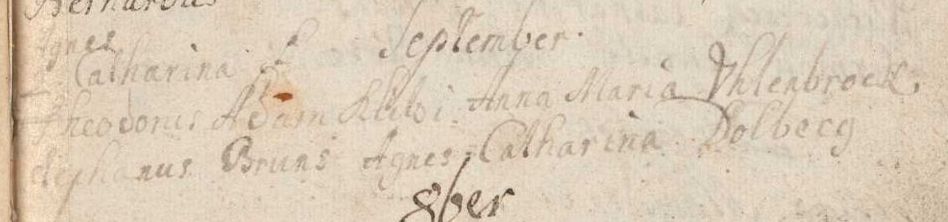 Bernardus
Agnes
Catharina f September.
Theodorus Adam Anna Maria Uhlenbrock,
Stephanus Bruns Agnes Catharina Dolbecg
8ber